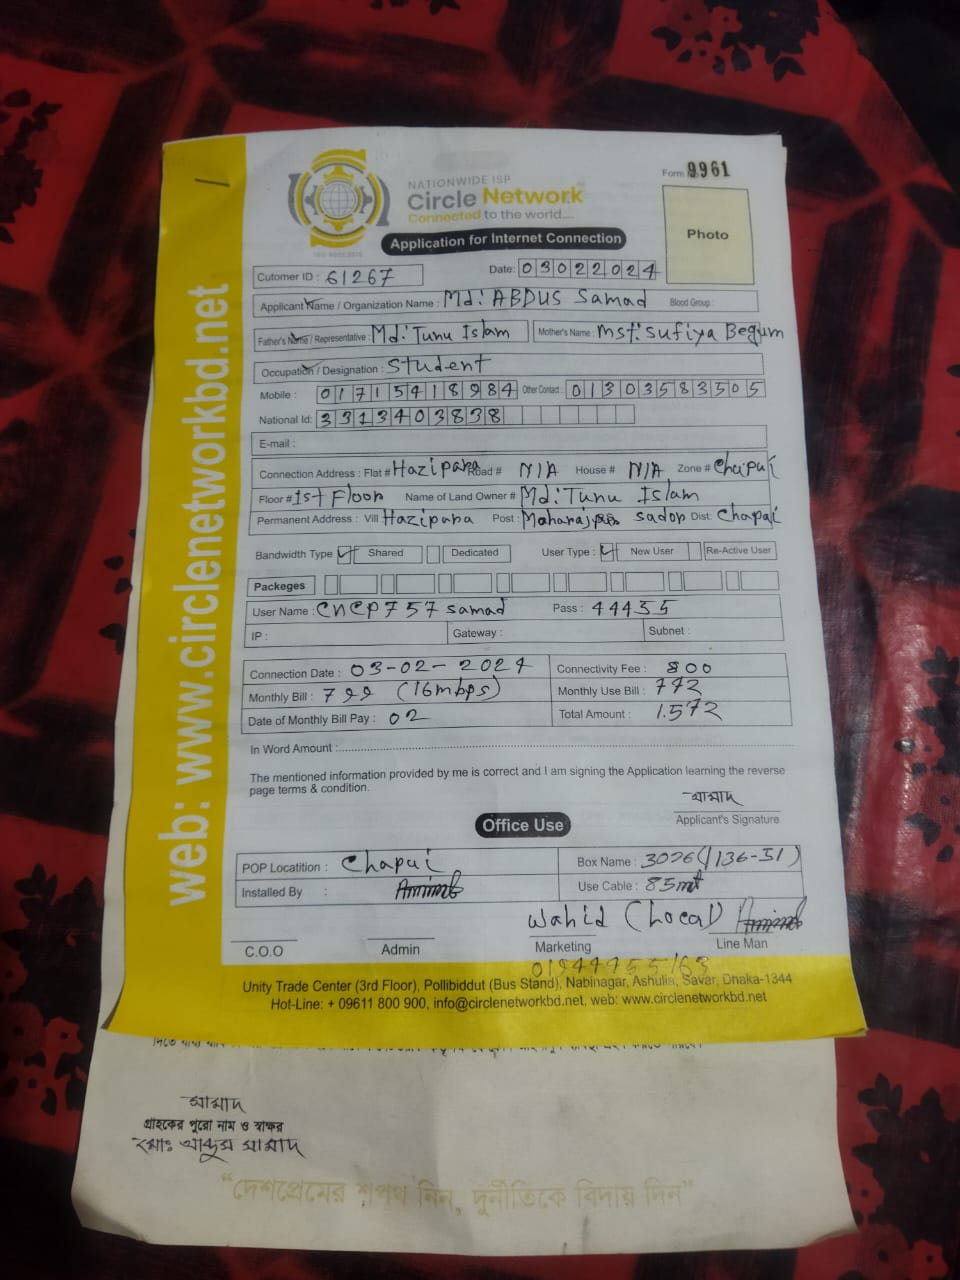 Form 9961
NATIONWIDE ISP
Circle Network
Connected to the world....
ISO 9001:2015
Application for Internet Connection
Photo
Cutomer ID : 61267
Date: 03022024
Applicant Name / Organization Name : Md: ABDUS Samad Blood Group :
Father's Name / Representative : Md: Tunu Islam Mother's Name : Mst: Sufiya Begum
Occupation / Designation : Student
Mobile : 01715418984 Other Contact : 01303583505
National Id: 3313403838
E-mail :
Connection Address : Flat # Hazipara Road # N/A House # N/A Zone # Chapai
Floor # 1st Floor Name of Land Owner # Md: Tunu Islam
Permanent Address : Vill Hazipara Post : sador Dist: Chapai
Bandwidth Type Shared Dedicated User Type : New User Re-Active User
Packeges
User Name : cncp757samad Pass : 44455
IP : Gateway : Subnet :
Connection Date : 03-02-2024 Connectivity Fee : 800
Monthly Bill : 799 (16mbps) Monthly Use Bill : 772
Date of Monthly Bill Pay : 02 Total Amount : 1.572
In Word Amount :
The mentioned information provided by me is correct and I am signing the Application learning the reverse
page terms & condition.
সামাদ
Applicant's Signature
Office Use
POP Locatition : Chapai Box Name : 3026(1136-51)
Installed By : Use Cable : 85mt
Wahid (Local)
C.O.O Admin Marketing Line Man
Unity Trade Center (3rd Floor), Pollibiddut (Bus Stand), Nabinagar, Ashulia, Savar, Dhaka-1344
Hot-Line: + 09611 800 900, info@circlenetworkbd.net, web: www.circlenetworkbd.net
web: www.circlenetworkbd.net
সামাদ
গ্রাহকের পুরো নাম ও স্বাক্ষর
মোঃ আব্দুস সামাদ
“দেশপ্রেমের শপথ নিন, দুর্নীতিকে বিদায় দিন”